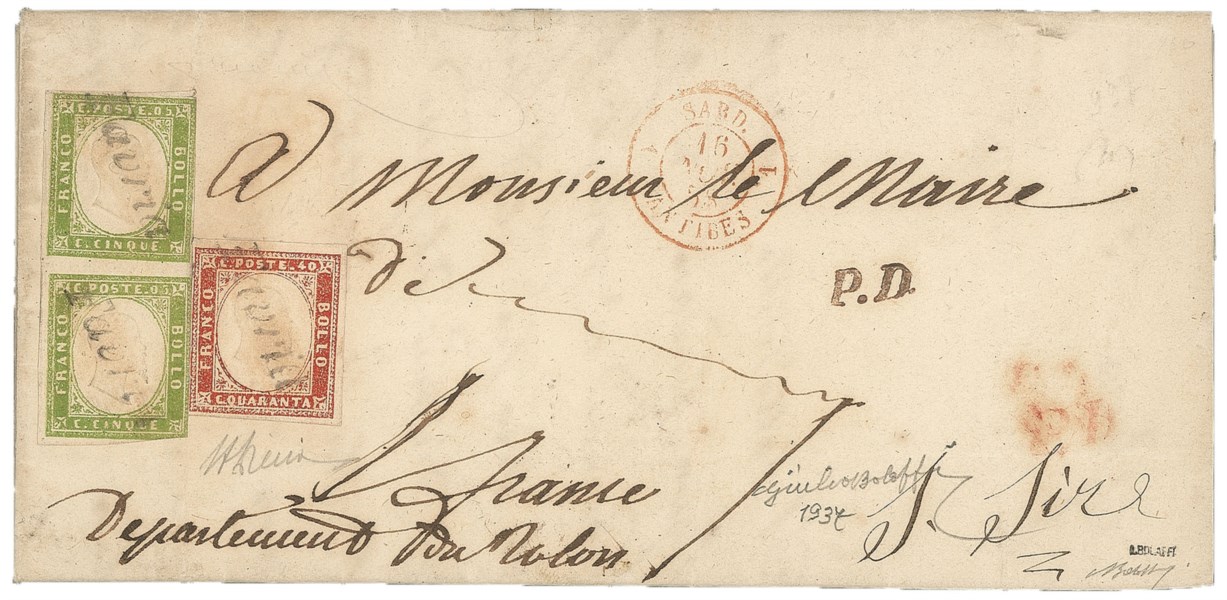 C. POSTE. 05
FRANCO
BOLLO
C. CINQUE
C. POSTE. 05
FRANCO
BOLLO
C. CINQUE
C. POSTE. 40
FRANCO
BOLLO
C. QUARANTA
SARD.
16
ANTIBES
P.D.
P.D
A Monsieur le Maire
de
S. Sire
France
Departement du
Giulio Bolaffi
1934